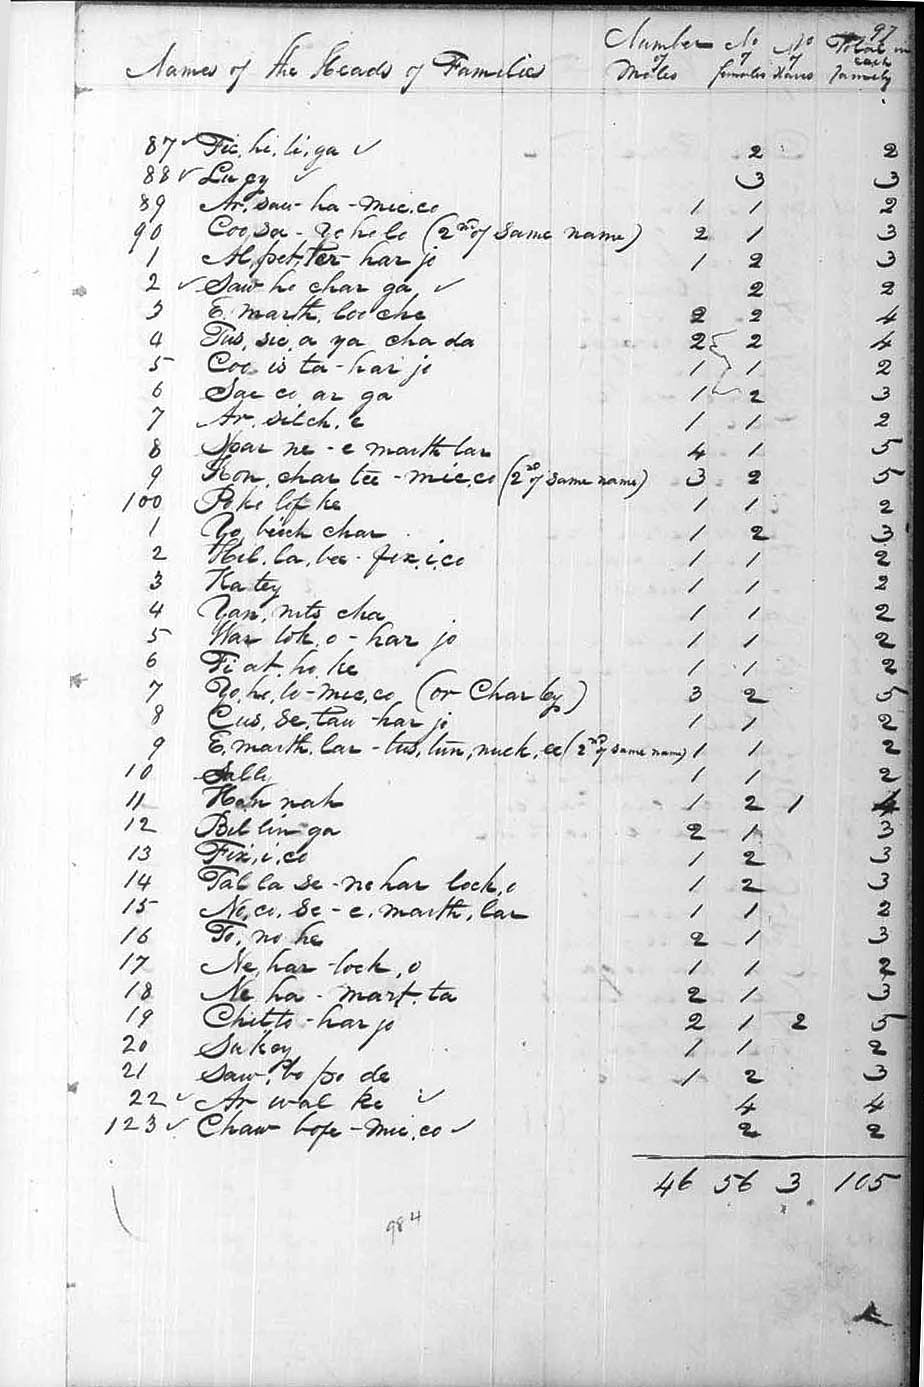 97
Names of the Heads of Families Number of Males No of females No of slaves Total in each family
87 ✓ Fic, hi, li, ga ✓ 2 2
88 ✓ Lucy ✓ 3 3
89 Ar, sau-ha-mic.co 1 1 2
90 Coo,sa-Yoholo (2nd of same name) 2 1 3
1 Al,pet,ter-harjo 1 2 3
2 ✓ Saw ho char ga ✓ 2 2
3 E. marth. loo che 2 2 4
4 Tus, sic, a ya cha da 2 2 4
5 Coo is ta-harjo 1 1 2
6 Sac co ar ga 1 2 3
7 Ar. silch. e 1 1 2
8 Spar ne-e marth lar 4 1 5
9 Kon, char tee-mic.co (2nd of same name) 3 2 5
100 Poho lof ke 1 1 2
1 Yo, beich char 1 2 3
2 Hil. la, bee-fix.i.co 1 1 2
3 Katey 1 1 2
4 Yan, nits cha 1 1 2
5 War lok, o-harjo 1 1 2
6 Fi at. ho, ke 1 1 2
7 Yo, ho, lo-mic,co (or Charley) 3 2 5
8 Cus, se, tau-harjo 1 1 2
9 E, marth, lar-tus, tun, nuck, ee (2nd of same name) 1 1 2
10 Sally 1 1 2
11 Han nah 1 2 1 4
12 Bil lin ga 2 1 3
13 Fix, i, co 1 2 3
14 Tal la se-nehar lock, o 1 2 3
15 No, co, se-e. marth, lar 1 1 2
16 To, no he 2 1 3
17 Ne, har-lock, o 1 1 2
18 Ne ha-mart, ta 2 1 3
19 Chitto-harjo 2 1 2 5
20 Sukey 1 1 2
21 Saw, bo po de 1 2 3
22 ✓ Ar wal ke ✓ 4 4
123 ✓ Chaw hope-mic.co ✓ 2 2
46 56 3 105
984